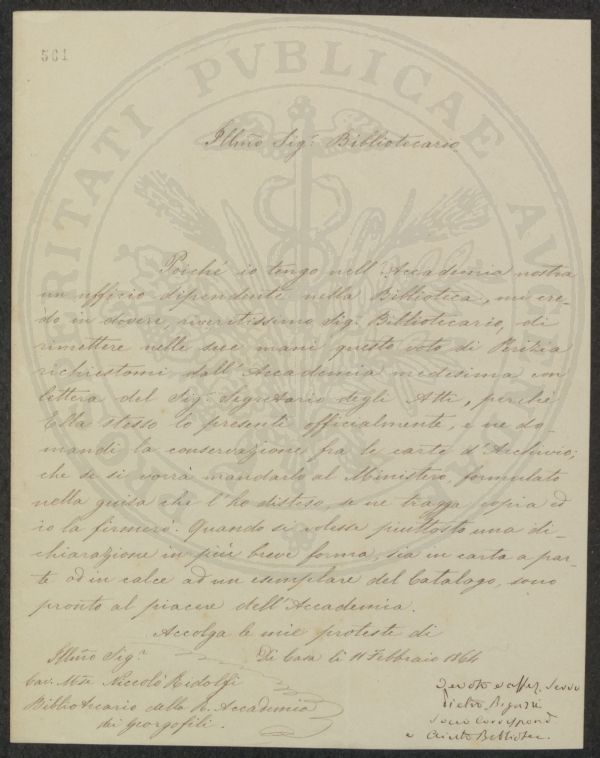 561
Illmo Sigr Bibliotecario
Poichè io tengo nell'Accademia nostra
un ufficio dipendente nella Biblioteca, me cre-
do in dovere, riveritissimo Sigr Bibliotecario, di
rimettere nelle sue mani questo voto di Perizia
richiestomi dall'Accademia medesima con
lettera del Sigr Segretario degli Atti, perchè
Ella stesso lo presenti officialmente, e ne do-
mandi la conservazione fra le carte d'Archivio;
che se si vorrà mandarlo al Ministero, formulato
nella guisa che l'ho disteso, se ne tragga copia ed
io la firmerò: Quando si volesse piuttosto una di-
chiarazione in più breve forma, sia in carta a par-
te od in calce ad un esemplare del Catalogo, sono
pronto al piacere dell'Accademia.
Accolga le mie proteste di
Illmo Sigr
Di Casa li 11 Febbraio 1864
Cav. Mse Niccolò Ridolfi
Bibliotecario della R. Accademia
dei Georgofili
Devoto ed affez. Servo
Pietro Bigazzi
Socio Corrispond
e Aiuto Bibliotec.
PVBLICAE